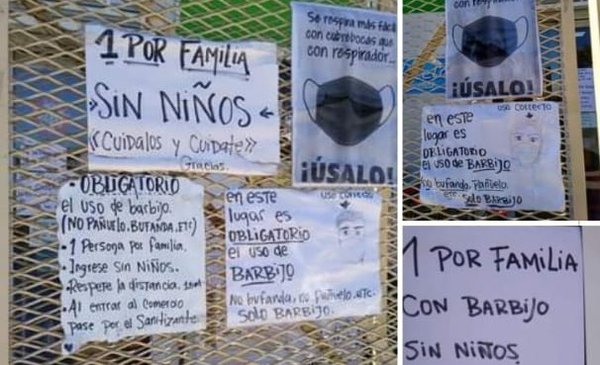 1 POR FAMILIA
SIN NIÑOS
«CUIDALOS Y CUIDATE»
Gracias.
Se respira más fácil
con cubrebocas que
con respirador...
¡ÚSALO!
- OBLIGATORIO
el uso de barbijo.
(NO PAÑUELO. BUFANDA. ETC)
- 1 Persona por familia.
- Ingrese SIN NIÑOS.
- Respete la distancia.
- Al entrar al comercio
pase por el Sanitizante
en este
uso correcto
lugar es
OBLIGATORIO
el uso de
BARBIJO
No bufanda, no pañuelo. etc.
SOLO BARBIJO.
con cubrebocas que
con respirador...
¡ÚSALO!
en este
uso correcto
lugar es
OBLIGATORIO
el uso de BARBIJO
no bufanda, Pañuelo.
etc.
SOLO BARBIJO
1 POR FAMILIA
CON BARBIJO
SIN NIÑOS